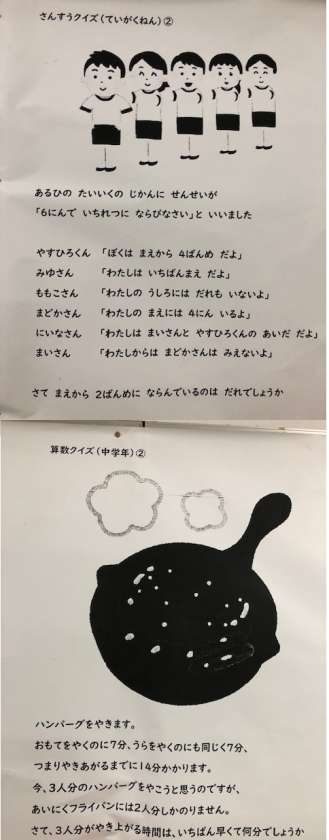 さんすうクイズ(ていがくねん)②
あるひの たいいくの じかんに せんせいが
「6にんで いちれつに ならびなさい」と いいました
やすひろくん 「ぼくは まえから 4ばんめ だよ」
みゆさん 「わたしは いちばんまえ だよ」
ももこさん 「わたしの うしろには だれも いないよ」
まどかさん 「わたしの まえには 4にん いるよ」
にいなさん 「わたしは まいさんと やすひろくんの あいだ だよ」
まいさん 「わたしからは まどかさんは みえないよ」
さて まえから 2ばんめに ならんでいるのは だれでしょうか
算数クイズ(中学年)②
ハンバーグをやきます。
おもてをやくのに7分、うらをやくのにも同じく7分、
つまりやきあがるまでに14分かかります。
今、3人分のハンバーグをやこうと思うのですが、
あいにくフライパンには2人分しかのりません。
さて、3人分がやき上がる時間は、いちばん早くて何分でしょうか